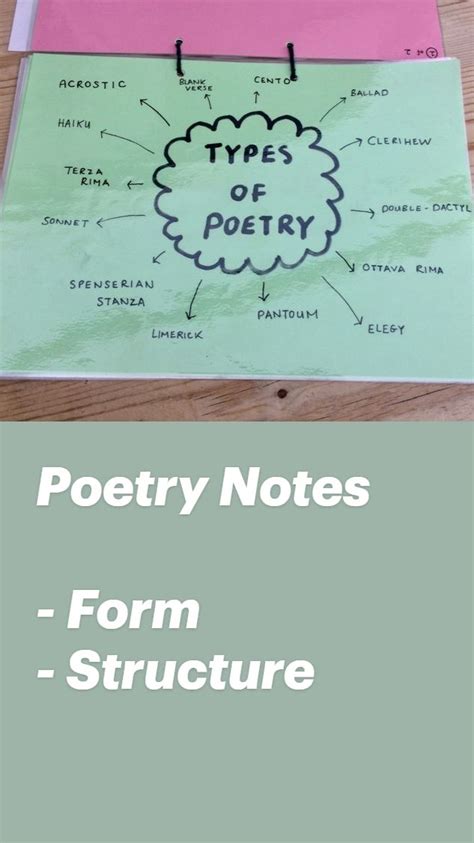 ACROSTIC
BLANK
VERSE
CENTO
BALLAD
HAIKU
CLERIHEW
TYPES
OF
POETRY
TERZA
RIMA
SONNET
DOUBLE-DACTYL
SPENSERIAN
STANZA
OTTAVA RIMA
LIMERICK
PANTOUM
ELEGY
Poetry Notes
- Form
- Structure